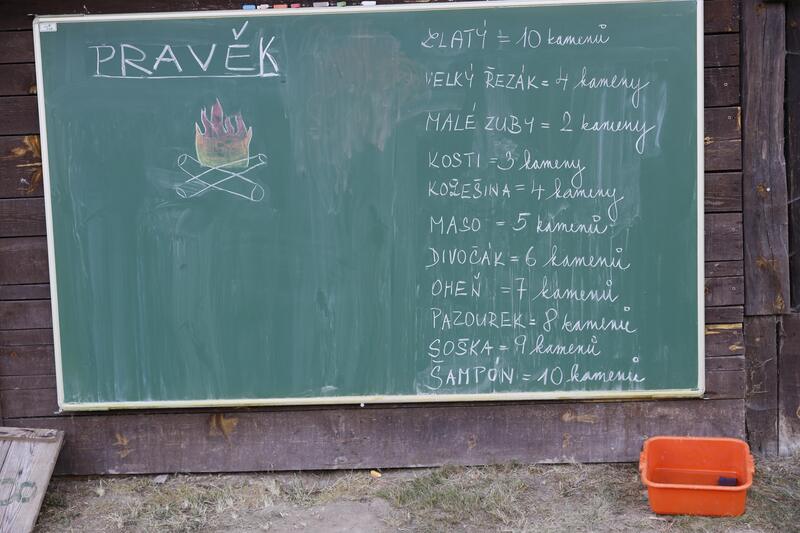 PRAVĚK
ZLATÝ = 10 kamenů
VELKÝ ŘEZÁK = 4 kameny
MALÉ ZUBY = 2 kameny
KOSTI = 3 kameny
KOŽEŠINA = 4 kameny
MASO = 5 kamenů
DIVOČÁK = 6 kamenů
OHEŇ = 7 kamenů
PAZOUREK = 8 kamenů
SOŠKA = 9 kamenů
ŠAMPÓN = 10 kamenů